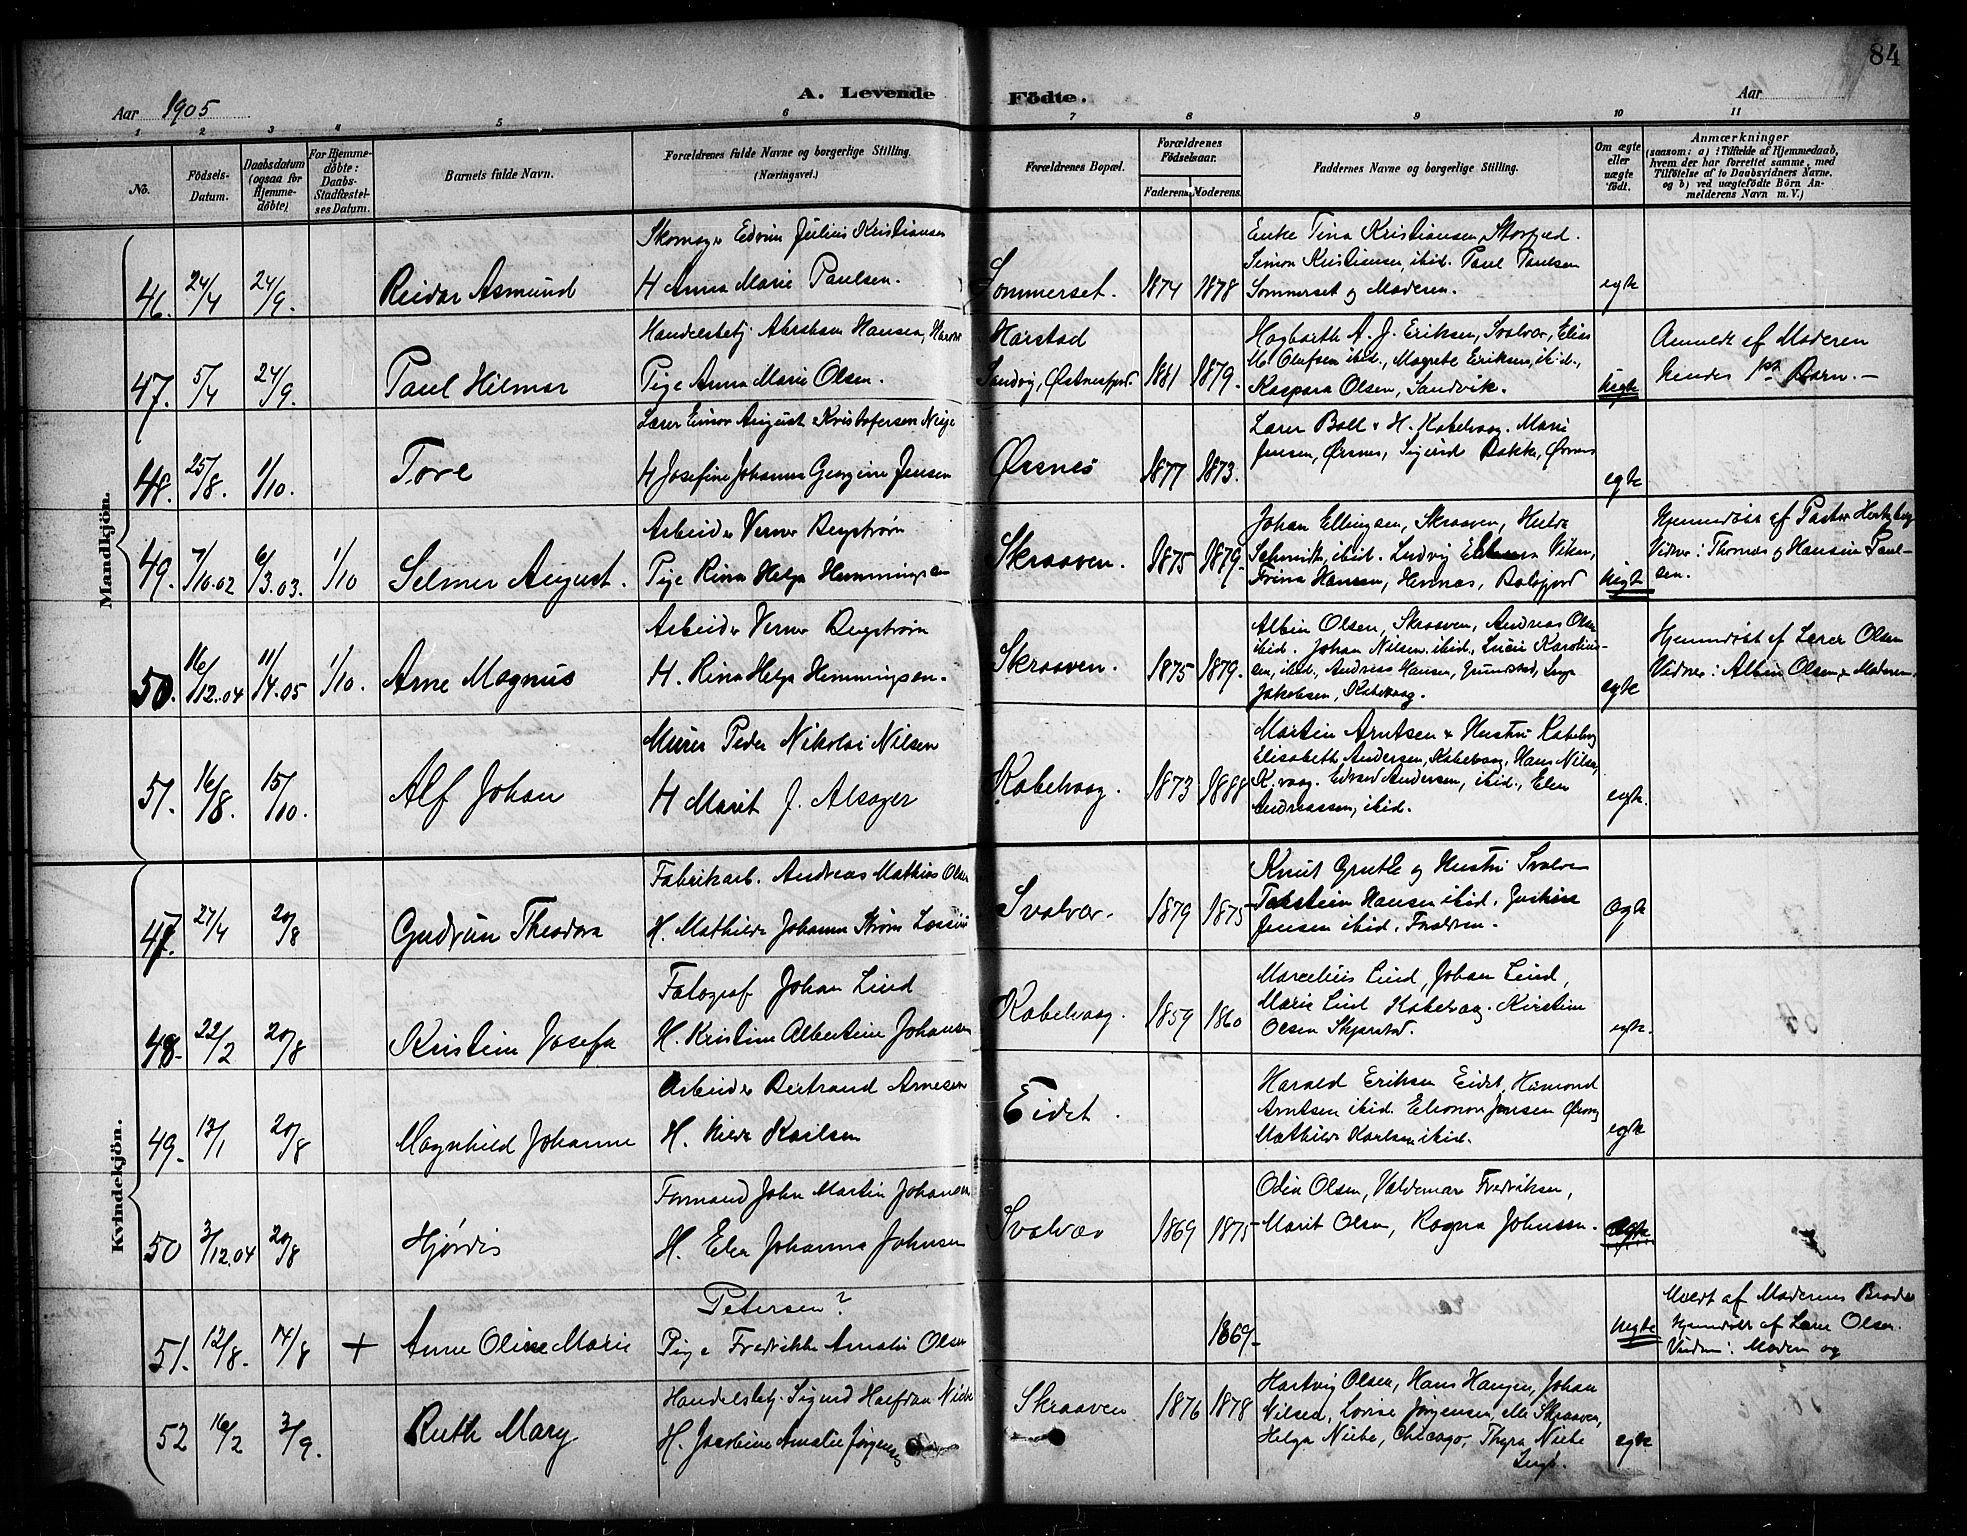 84
Aar 1905
A. Levende Födte.
Aar
1 2 3 4 5 6 7 8 9 10 11
No.
Födsels-Datum.
Daabsdatum (ogsaa for Hjemme-döbte)
For Hjemme-döbte: Daabs-Stadfæstel-ses Datum.
Barnets fulde Navn.
Forældrenes fulde Navne og borgerlige Stilling. (Næringsvei.)
Forældrenes Bopæl.
Forældrenes Födselsaar.
Faderens. Moderens.
Faddernes Navne og borgerlige Stilling.
Om ægte eller uægte födt.
Anmærkninger
(saasom: a) i Tilfælde af Hjemmedaab,
hvem der har forrettet samme, med
Tilföielse af to Daabsvidners Navne.
og b) ved uægtefödte Börn An-
melderens Navn m.V.)
Mandkjön.
46. 24/4 24/9. Reidar Asmund
Skomager Edvin Julius Kristiansen
H Anna Marie Paulsen.
Sommerset. 1874 1878
Enke Tina Kristiansen, Storfjed.
Simon Kristiansen, ibid. Paul Paulsen
Sommerset og Moderen.
egte
47. 5/4 24/9. Paul Hilmar
Handelsbetj. Abraham Hansen,
Pige Anna Marie Olsen.
Harstad
Sandvig, Østnesfjord. 1881 1879.
Hagbarth A. J. Eriksen, Svolvær, Elise
M. Olufsen ibid., Magrete Eriksen, ibid.,
Kaspara Olsen, Sandvik.
uegte
Anmeldt af Moderen
hendes 1ste Barn.
48. 25/8. 1/10. Tore
Lærer Einar August Kristofersen
H Josefine Johanna Georgine Jensen
Ørsnes 1877 1873.
Lærer Boll & H. Kabelvaag. Marie
Jensen, Ørsnes, Sigurd Bakke, Ørsnes
egte
49. 7/10.02 6/3.03. 1/10 Selmer August.
Arbeider Verner Bergstrøm
Pige Rina Helga Hemmingsen
Skraaven. 1875 1879.
Johan Ellingsen, Skraaven, Hulda
Schmidt, ibid. Ludvig
Trina Hansen, Hennes,
uegte
Hjemmedøbt af Pastor Hertzberg
Vidner: Thomas og Hansine Paul-
sen.
50. 16/12.04 11/4.05 1/10. Arne Magnus
Arbeider Verner Bergstrøm
H. Rina Helga Hemmingsen.
Skraaven. 1875 1879.
Albin Olsen, Skraaven, Andreas Olsen
ibid. Johan Nilsen, ibid., Lucie Karolius-
sen, ibid., Andreas Hansen,
Jakobsen, Kabelvaag.
egte
Hjemmedøbt af Lærer Olsen
Vidner: Albin Olsen & Moderen.
51. 16/8. 15/10. Alf Johan
Murer Peder Nikolai Nilsen
H Marit J. Alsager
Kabelvaag. 1873 1888
Martin Arntsen & Hustru Kabelvag
Elisabeth Andersen, Kabelvaag, Hans Nilsen,
K.vaag. Edvard Andersen, ibid., Elen
Andreassen, ibid.
egte.
Kvindekjön.
47. 27/4 20/8 Gudrun Theodora
Fabrikarb. Andreas Mathias Olsen
H. Mathilde Johanna Strøm
Svolvær. 1879 1875
Knut Grutle og Hustru Svolvær
Hansen ibid.
Jensen ibid. Forældren.
egte
48. 22/2 20/8 Kristine Josefa
Fotograf Johan Lind
H. Kristine Albertine Johansen
Kabelvaag. 1859 1860
Marcelius Lind, Johan Lind,
Marie Lind Kabelvaag. Kirstine
Olsen
egte.
49. 13/1 20/8 Magnhild Johanne
Arbeider Bertrand Arnesen
H. Karlsen
Eidet.
Harald Eriksen Eidet,
Arntsen ibid. Eleonora Jensen
Mathilde Karlsen ibid.
egte
50 3/12.04 20/8 Hjørdis
Formand John Martin Johansen
H. Elen Johanna Johnsen
Svolvær 1869 1875
Odin Olsen, Valdemar Fredriksen,
Marit Olsen, Ragna Johnsen.
egte
51. 12/8. 14/8 + Anne Oline Marie
Petersen?
Pige Fredrikke Amalie Olsen
1869
uegte
af Moderens Broder
Hjemmedøbt af Lærer Olsen.
Moderen og
52 16/2 3/9. Ruth Mary
Handelsbetj. Sigurd Halfdan
H. Jacobine Amalie
Skraaven 1876 1878
Hartvig Olsen, Hans Hansen, Johan
Nilsen, Lovise Jørgensen, alle Skraaven,
Helga Niebe, Chicago, Thyra Niebe
egte